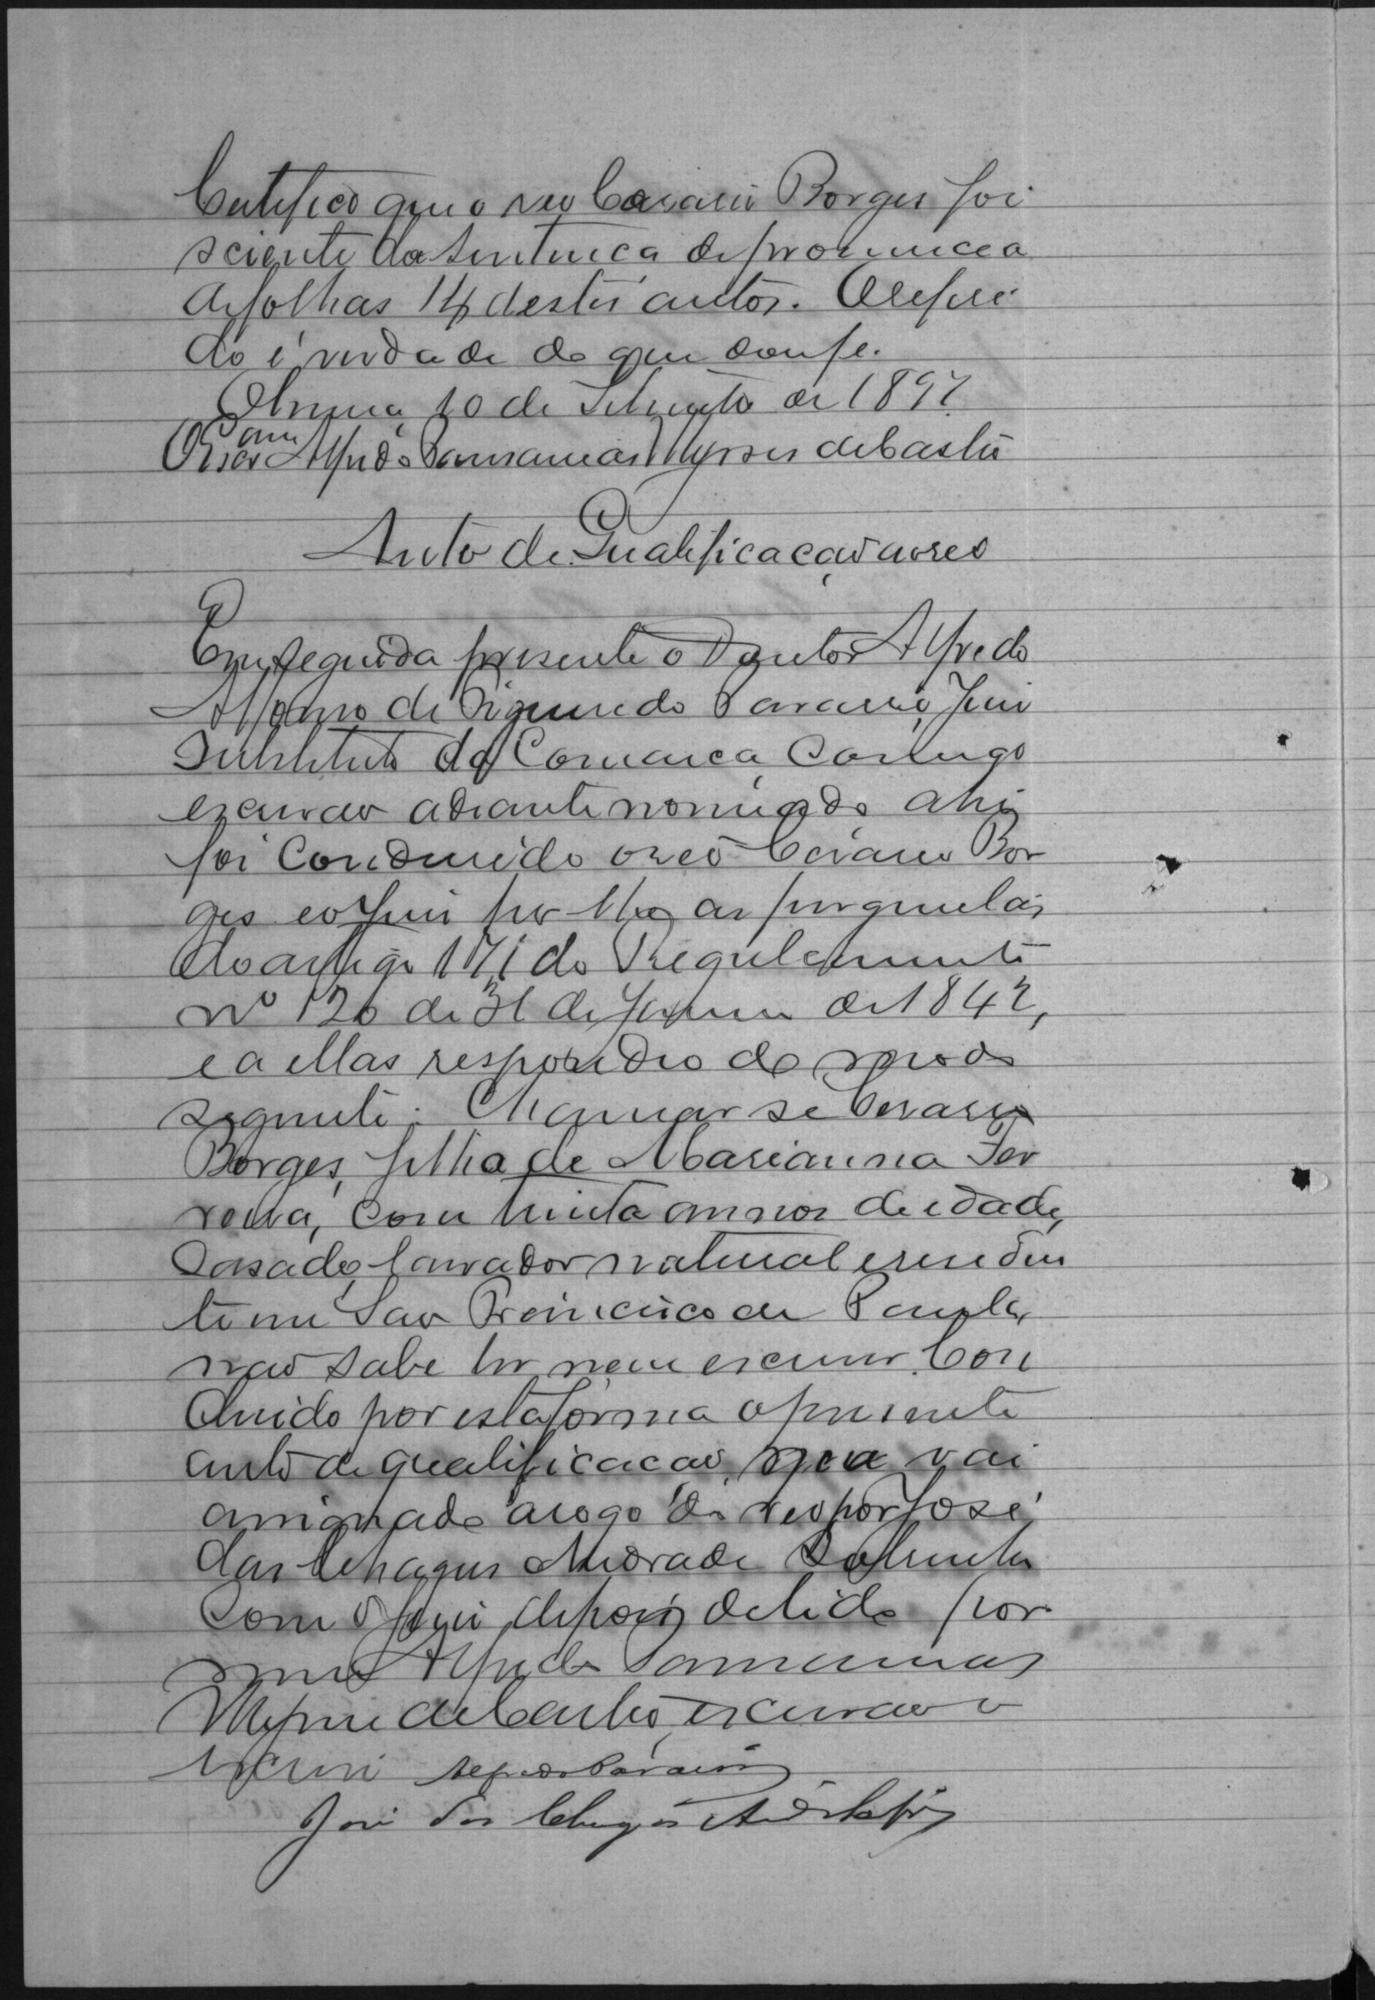 Certifico que o reo Cesario Borges foi
sciente da sentença de pronuncia
de folhas 14 destes autos. O referi
do é verdade do que dou fe.
10 de Setembro de 1897
Alfredo Ulysses de Castro
Auto de Qualificação ao reo
Em seguida presente o Doutor Alfredo
Affonso de Figueredo Juiz
Substituto da Comarca, Comigo
escrivao adiante nomiado ahi
foi Conduzido o reo Cesario Bor
ges e o Juiz fez-lhe as perguntas
do artigo 171 do Regulamento
nº 120 de 31 de Janeiro de 1842,
e a ellas respondeo do modo
seguinte: Chamar se Cesario
Borges, filho de Marianna Fer
reira, com trinta annos de idade,
Casado, lavrador natural e residen
te em Sao Francisco de Paula,
nao sabe ler nem escrever. Con
cluido por esta forma o presente
auto de qualificacao, que vai
assignado a rogo do reo por José
das Chagas Andrade
Com o Juiz depois de lido por
mim Alfredo
de Castro, escrivao o
escrevi
José das Chagas